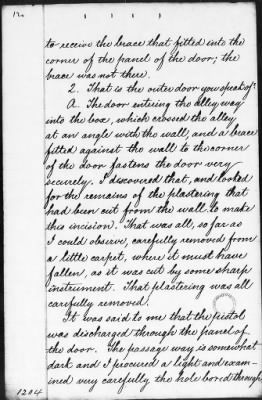 12
to receive the brace that fitted into the
corner of the panel of the door; the
brace was not there.
2. That is the outer door you speak of?
A. The door entering the alley way
into the box, which crossed the alley
at an angle with the wall, and a brace
fitted against the wall to the corner
of the door fastens the door very
securely. I discovered that, and looked
for the remains of the plastering that
had been cut from the wall to make
this incision. That was all, so far as
I could observe, carefully removed from
a little carpet, where it must have
fallen, as it was cut by some sharp
instrument. That plastering was all
carefully removed.
It was said to me that the pistol
was discharged through the panel of
the door. The passage way is somewhat
dark and I procured a light and exam-
ined very carefully the hole bored through
1204